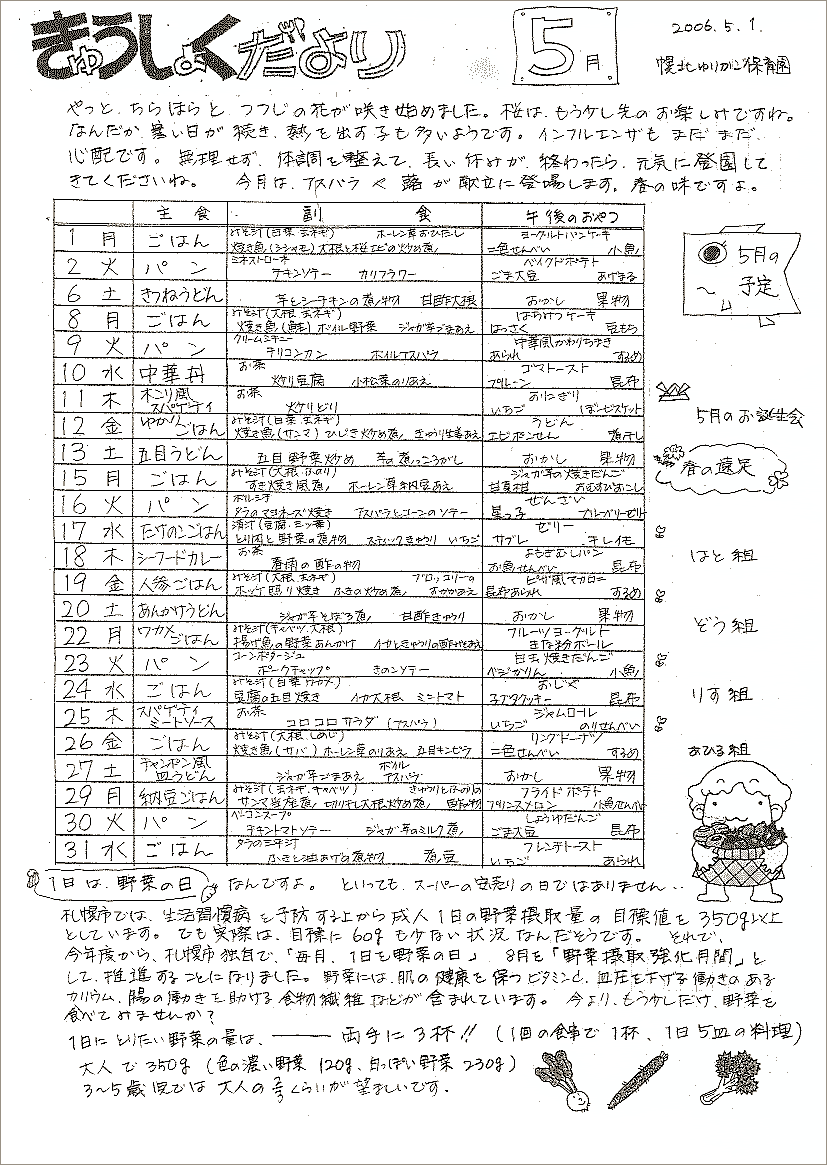 きゅうしょくだより
5月
2006.5.1.
幌北ゆりがこ保育園
やっと、ちらほらと、つつじの花が咲き始めました。桜は、もう少し先のお楽しみですね。
なんだか、寒い日が続き、熱を出す子も多いようです。インフルエンザも まだまだ、
心配です。無理せず、体調を整えて、長い休みが、終わったら、元気に登園して
きてくださいね。 今月は、アスパラや蕗が献立に登場します。春の味ですよ。
主食 副食 午後のおやつ
1 月 ごはん みそ汁(白菜、玉ネギ) ホーレン草おひたし ヨーグルトパンケーキ
焼き魚(シシャモ) 大根と桜エビの炒め煮 二色せんべい 小魚
2 火 パン ミネストローネ ベイクドポテト
チキンソテー カリフラワー ごま大豆 あげまる
6 土 きつねうどん 芋とシーチキンの煮物 甘酢大根 おかし 果物
8 月 ごはん みそ汁(大根、玉ネギ) はちみつケーキ
焼き魚(鮭) ボイル野菜 ジャガ芋ごまあえ はっさく 豆もち
9 火 パン クリームシチュー 中華風かわりちまき
チリコンカン ボイルアスパラ あられ するめ
10 水 中華丼 お茶 ゴマトースト
炒り豆腐 小松菜のりあえ プルーン 昆布
11 木 きのこ風スパゲティ お茶 おにぎり
炒りどり いちご ぼービスケット
12 金 ゆかりごはん みそ汁(白菜、玉ネギ) うどん
焼き魚(サンマ) ひじき炒め煮 きゅうり生姜あえ エビポンせん 煮干し
13 土 五目うどん 五目野菜炒め 芋の煮っころがし おかし 果物
15 月 ごはん みそ汁(大根、ふのり) ジャガ芋の焼きだんご
すき焼き風煮 ホーレン草納豆あえ 甘夏柑 おむすびおこし
16 火 パン ボルシチ ぜんざい
タラのマヨネーズ焼き アスパラとコーンのソテー 黒っ子 ブルーベリーゼリー
17 水 たけのこごはん 清汁(豆腐、三ッ葉) ゼリー
とり肉と野菜の煮物 スティックきゅうり いちご サブレ キレイモ
18 木 シーフードカレー お茶 よもぎむしパン
春雨の酢の物 お魚せんべい 昆布
19 金 人参ごはん みそ汁(大根、玉ネギ) ブロッコリーの ピザ風マカロニ
ホッケ照り焼き ふきの炒め煮 おかかあえ 昆布あられ するめ
20 土 あんかけうどん ジャガ芋そぼろ煮 甘酢きゅうり おかし 果物
22 月 ワカメごはん みそ汁(キャベツ、大根) フルーツヨーグルト
揚げ魚の野菜あんかけ イカときゅうりの酢みそあえ きな粉ボール
23 火 パン コーンポタージュ 白玉焼きだんご
ポークチャップ きのこソテー ベジかりん 小魚
24 水 ごはん みそ汁(白菜、ワカメ) おじや
豆腐の五目焼き イカ大根 ミニトマト 子ブタクッキー 昆布
25 木 スパゲティミートソース お茶 ジャムロール
コロコロサラダ(アスパラ) いちご のりせんべい
26 金 ごはん みそ汁(大根、しめじ) リングドーナツ
焼き魚(サバ) ホーレン草のりあえ 五目キンピラ 二色せんべい するめ
27 土 チャンポン風皿うどん ボイル
ジャガ芋ごまあえ アスパラ おかし 果物
29 月 納豆ごはん みそ汁(玉ネギ、キャベツ) きゅうりとふのりの フライドポテト
サンマ生姜煮 切り干し大根炒め煮 酢の物 プリンスメロン 小魚せんべい
30 火 パン ベーコンスープ しょうゆだんご
チキントマトソテー ジャガ芋のミルク煮 ごま大豆 昆布
31 水 ごはん タラの三平汁 フレンチトースト
ふきと油あげの煮物 煮豆 いちご あられ
5月の
予定
5月のお誕生会
春の遠足
はと組
ぞう組
りす組
あひる組
1日は、野菜の日 なんですよ。 といっても、スーパーの安売りの日ではありません‥
札幌市では、生活習慣病を予防する上から成人1日の野菜摂取量の目標値を350g以上
としています。でも実際は、目標に60gも少ない状況なんだそうです。 それで、
今年度から、札幌市独自で、「毎月、1日を野菜の日」、8月を「野菜摂取強化月間」と
して、推進することになりました。野菜には、肌の健康を保つビタミンと、血圧を下げる働きのある
カリウム、腸の働きを助ける食物繊維などが含まれています。 今より、もう少しだけ、野菜を
食べてみませんか?
1日にとりたい野菜の量は、―― 両手に3杯!! (1回の食事で1杯、1日5皿の料理)
大人で350g (色の濃い野菜 120g、白っぽい野菜 230g)
3~5歳児では大人の2/3くらいが望ましいです。